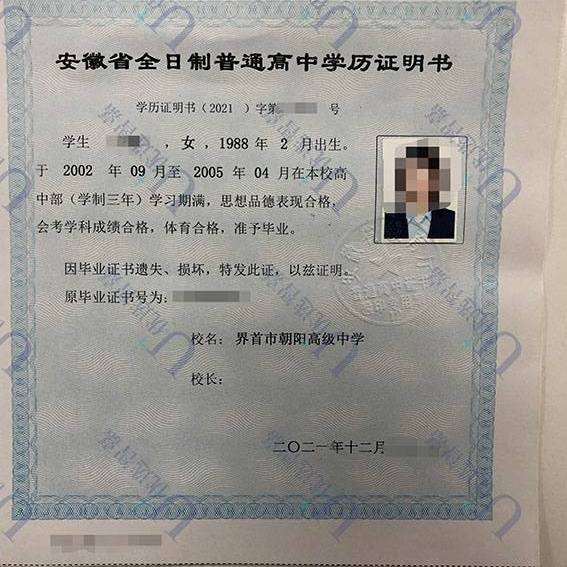 安徽省全日制普通高中学历证明书
学历证明书（2021 ）字第 号
学生 ，女，1988 年 2 月出生。
于 2002 年 09 月至 2005 年 04 月在本校高
中部（学制三年）学习期满，思想品德表现合格，
会考学科成绩合格，体育合格，准予毕业。
因毕业证书遗失、损坏，特发此证，以兹证明。
原毕业证书号为：
校名： 界首市朝阳高级中学
校长：
二〇二一年十二月